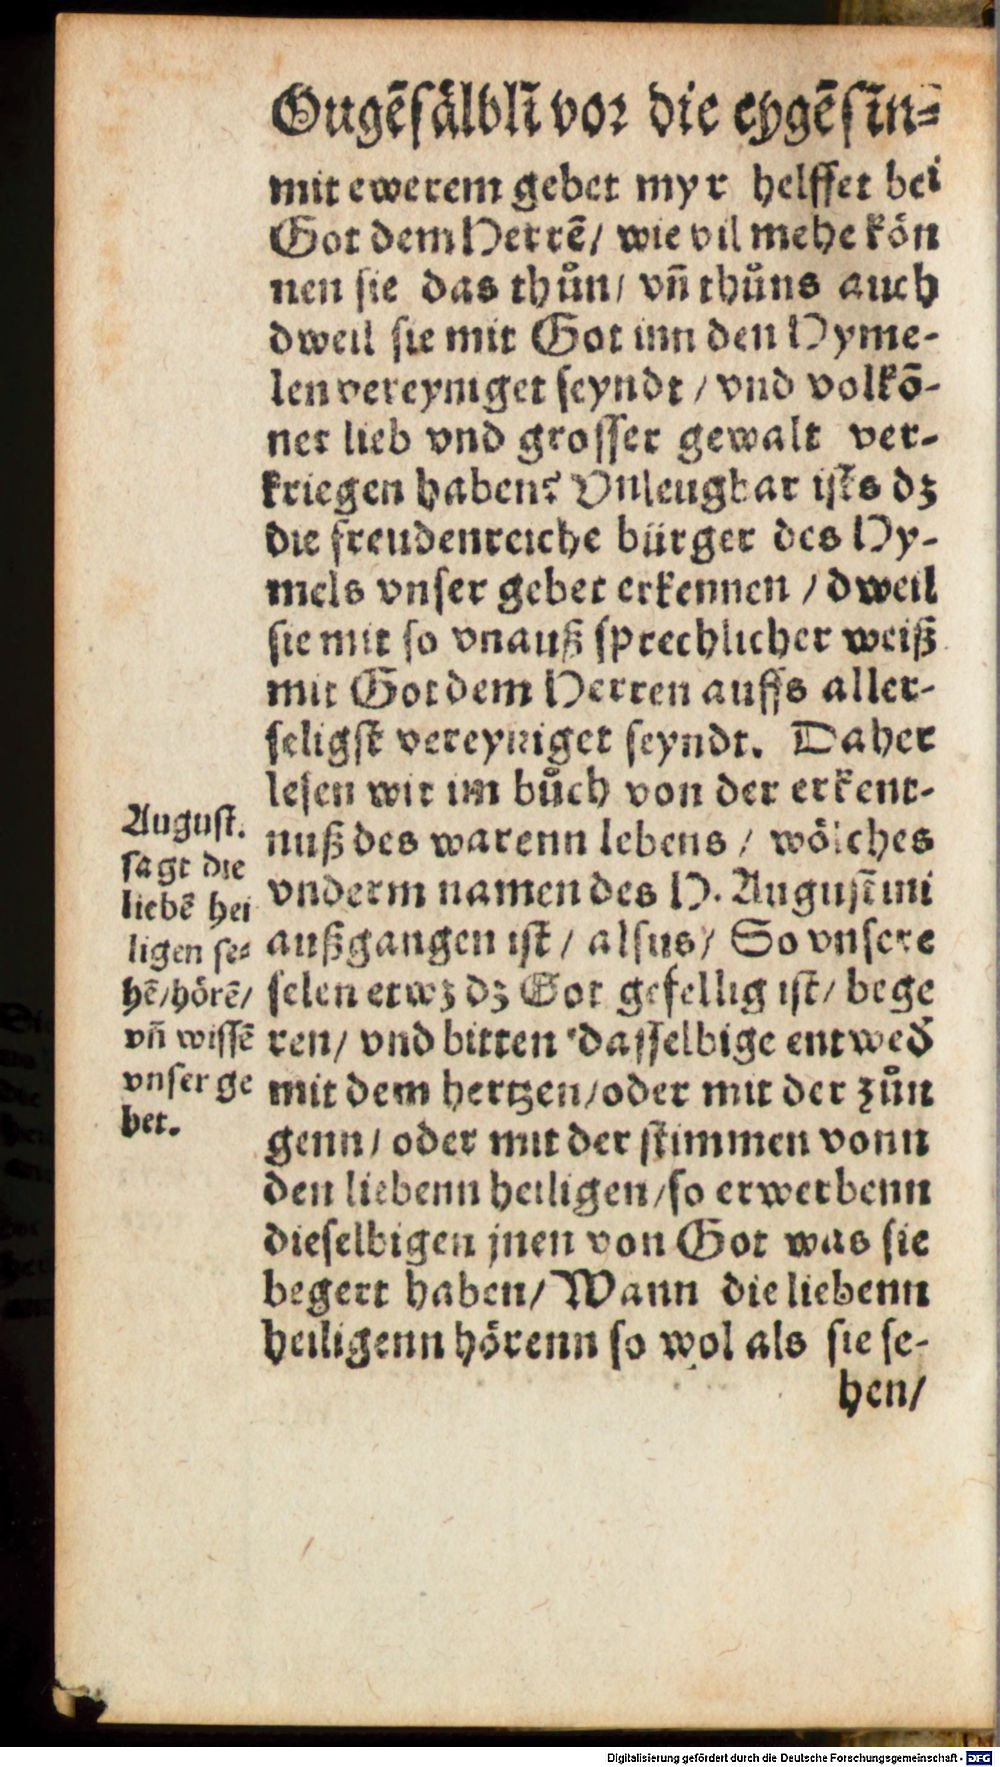 Ougēsälblī vor die eygēsīn=
mit ewerem gebet myr helffet bei
Got dem Herrē/ wie vil mehe kön
nen sie das thůn/ vñ thůns auch
dweil sie mit Got inn den Hyme-
len vereyniget seyndt / vnd volkō-
ner lieb vnd grosser gewalt ver-
kriegen haben? Vnleugbar ists dz
die freudenreiche bürger des Hy-
mels vnser gebet erkennen / dweil
sie mit so vnauß sprechlicher weiß
mit Got dem Herren auffs aller-
seligst vereyniget seyndt. Daher
lesen wir im bůch von der erkent-
nuß des warenn lebens / wölches
vnderm namen des H. Augustini
außgangen ist / alsus/ So vnsere
selen etwz dz Got gefellig ist/ bege
ren/ vnd bitten dasselbige entwed̄
mit dem hertzen/oder mit der zůn
genn/ oder mit der stimmen vonn
den liebenn heiligen/so erwerbenn
dieselbigen jnen von Got was sie
begert haben/ Wann die liebenn
heiligenn hörenn so wol als sie se-
hen/
August.
sagt die
liebē hei
ligen se=
hē/hörē/
vñ wissē
vnser ge
bet.
Digitalisierung gefördert durch die Deutsche Forschungsgemeinschaft - DFG